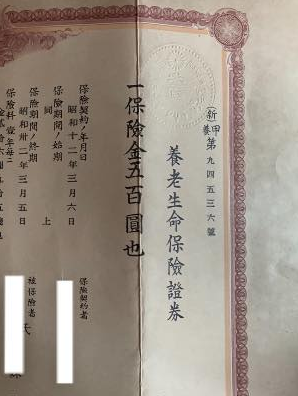 新甲養第九四五三六號
養老生命保險證券
一保險金五百圓也
保險契約ノ年月日
昭和十二年三月六日
保險期間ノ始期
同上
保險期間ノ終期
昭和卅二年三月五日
保險料壹年每ニ
保險契約者
被保險者